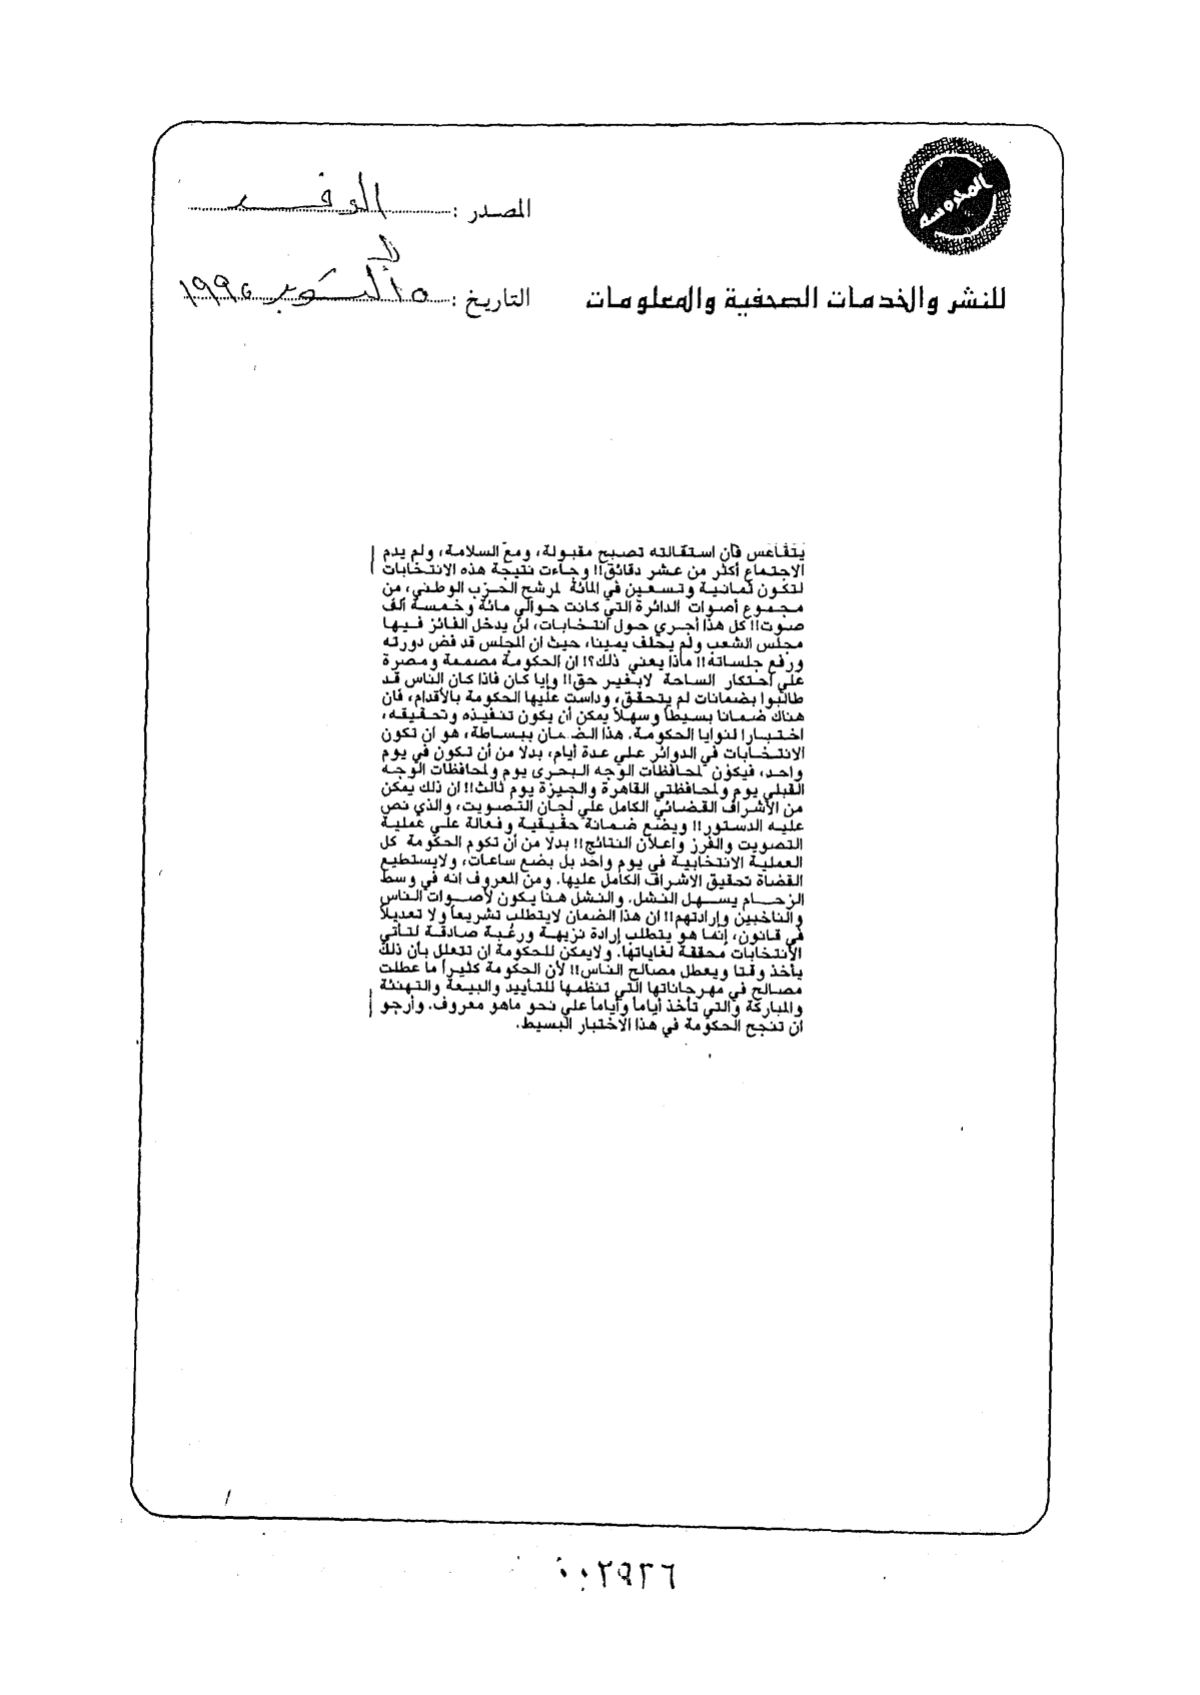 المحروسة
المصدر : الوفد
للنشر والخدمات الصحفية والمعلومات
التاريخ : ١٥ أكتوبر ١٩٩٥
يتقاعس فان استقالته تصبح مقبولة، ومع السلامة، ولم يدم
الاجتماع أكثر من عشر دقائق!! وجاءت نتيجة هذه الانتخابات
لتكون ثمانية وتسعين في المائة لمرشح الحزب الوطني، من
مجموع أصوات الدائرة التي كانت حوالي مائة وخمسة ألف
صوت!! كل هذا أجري حول انتخابات، لن يدخل الفائز فيها
مجلس الشعب ولم يحلف يمينا، حيث ان المجلس قد فض دورته
ورفع جلساته!! ماذا يعني ذلك؟! ان الحكومة مصممة ومصرة
علي احتكار الساحة لابغير حق!! وإيا كان فاذا كان الناس قد
طالبوا بضمانات لم يتحقق، وداست عليها الحكومة بالأقدام، فان
هناك ضمانا بسيطا وسهلاً يمكن أن يكون تنفيذه وتحقيقه،
اختبارا لنوايا الحكومة. هذا الضمان ببساطة، هو ان تكون
الانتخابات في الدوائر علي عدة أيام، بدلا من أن تكون في يوم
واحد، فيكون لمحافظات الوجه البحرى يوم ولمحافظات الوجه
القبلي يوم ولمحافظتي القاهرة والجيزة يوم ثالث!! ان ذلك يمكن
من الأشراف القضائي الكامل علي لجان التصويت، والذي نص
عليه الدستور!! ويضع ضمانة حقيقية وفعالة علي عملية
التصويت والفرز واعلان النتائج!! بدلا من أن تكوم الحكومة كل
العملية الانتخابية في يوم واحد بل بضع ساعات، ولايستطيع
القضاة تحقيق الاشراف الكامل عليها. ومن المعروف انه في وسط
الزحـــام يســهل النشل. والنشل هنا يكون لأصوات الناس
والناخبين وإرادتهم!! ان هذا الضمان لايتطلب تشريعاً ولا تعديلاً
في قانون، إنما هو يتطلب إرادة نزيهة ورغبة صادقة لتأتي
الانتخابات محققة لغاياتها. ولايمكن للحكومة ان تتعلل بأن ذلك
يأخذ وقتا ويعطل مصالح الناس!! لأن الحكومة كثيراً ما عطلت
مصالح في مهرجاناتها التي تنظمها للتأييد والبيعة والتهنئة
والمباركة والتي تأخذ أياماً وأياماً علي نحو ماهو معروف. وأرجو
ان تنجح الحكومة في هذا الاختبار البسيط.
٠٠٢٩٢٦